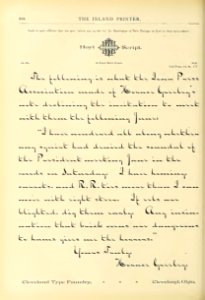 THE INLAND PRINTER.
Hart Script.
The following is what the Iowa Press
Association made of Homer
note declining the invitation to meet
with them the following June:
"I have wondered all along whether
any squirt had denied the scandal of
the President meeting Jane in the
woods on Saturday. I have hominy
carrots, and R. R. ties more than I can
move with eight steers. If eels are
blighted, dig them early. Any insinu-
ation that brick ovens are dangerous
to hams gives me the horrors."
Yours Truly
Homer
Cleveland Type Foundry,
Cleveland, Ohio.